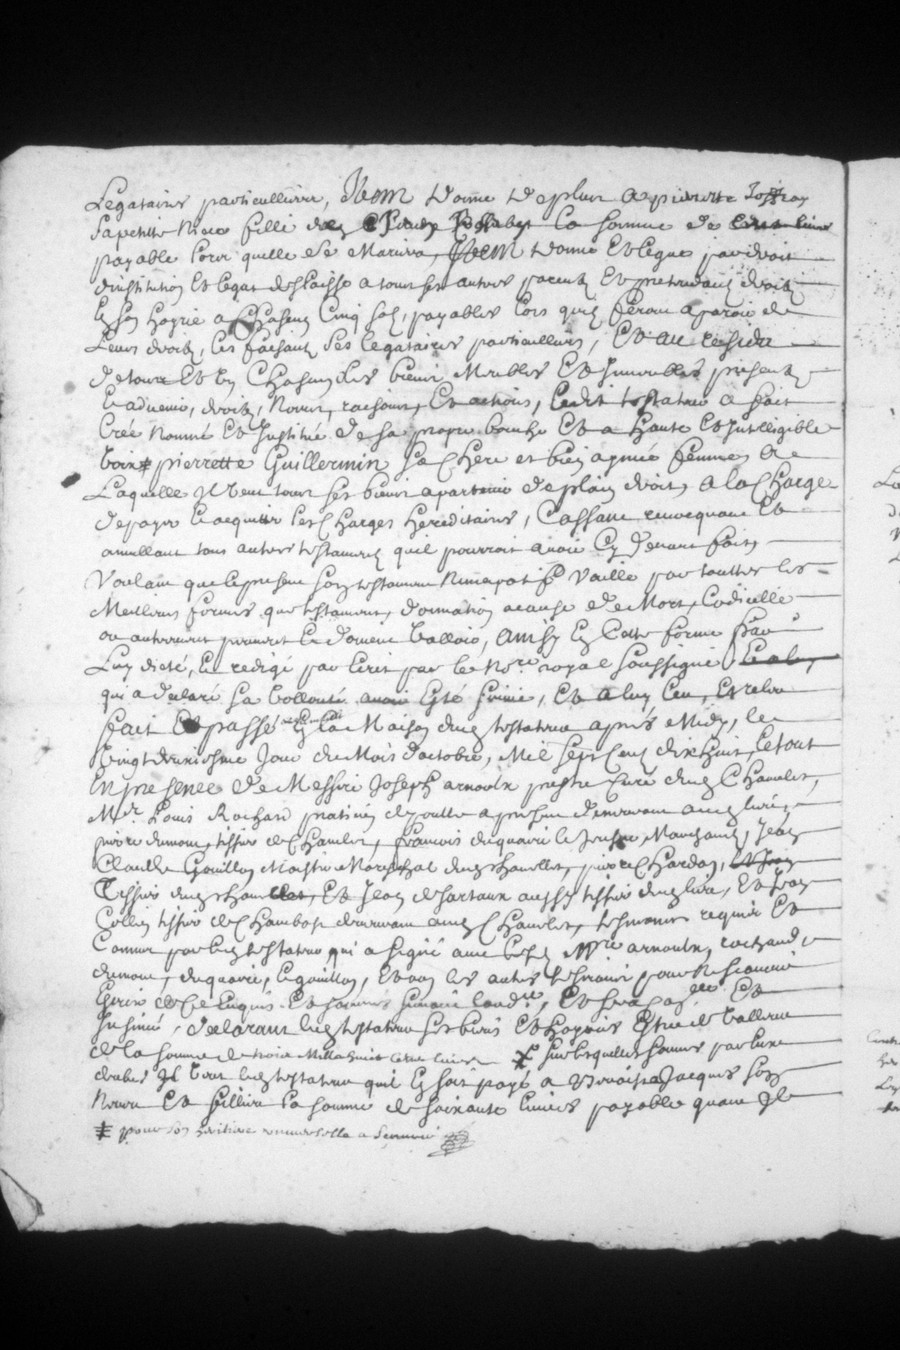 Legataires particulliers, Item donne de plus a pierrette
sa petitte Niece fille de la somme de
payable lors quelle se Mariera, Item donne et legue par droit
dinstitution et legat delaisse a tous ses autres parents et pretendants droits
En son hoyrie a Chascun Cinq sols, payables lors quils feront aparoir de
Leurs droits, les faisant ses legataires particulliers, Et au residu
de tous et un Chascuns ses biens Meubles Et Immeubles presents
Et advenir, droits, Noms, raisons, Et actions, Ledit testateur a fait
Créé Nommé Et Institué de sa propre bouche Et a haute Et Intelligible
Voix # pierrette Guillermin sa Chere et bien aymée femme, A
Laquelle Il veut tous ses biens apartenir de plain droit, a la Charge
de payer Et acquitter les Charges hereditaires, Cassant revocquant Et
annullant tous autres testaments quil pourroit avoir Cy devant faits
Voulant que le present son testament Vaille par touttes les
Meilleurs formes que testament, donnation a cause de Mort, Codicille
ou autrement peuvent Et doivent Valloir, Ainsy En Cette forme par
Luy dicté, Et redigé par Ecrit par le Nore royal soussigné
qui a declaré sa Vollonté avoir Esté suivie, Et a luy leu, Et releu
fait Et passé En la Maison dudt testateur aprés Midy, le
Vingt deuxiesme Jour du Mois doctobre, Mil sept Cent dix huit, le tout
En presence de Messire Joseph arnoulx prestre Curé dudt Chamelet,
Mr Louis Rochard praticien
pierre dumont, tissier de Chamelet, francois duquaire le Jeune, Marchand, Jean
Claude Gouillon Maistre Marechal dudt Chamelet, pierre Chardon,
Tissier dudt Chamelet, Et Jean desartaux aussy tissier dudt lieu, Et Jean
Collin tissier de Chambost demeurant audt Chamelet, tesmoins requis Et
Connus par ledt testateur qui a signé avec lesdt Mre arnoulx, rochard
dumont, duquaire, Et gouillon, Et non les autres tesmoins pour ne scavoir
Escrire de ce Enquis Et sommés suivant londce, Et sera Et
Insinué, declarant ledt testateur ses biens Et hoyrie Estre de Valleur
de la somme de trois Mille huit Cent livres # sur lesquelles sommes par luy
Il veut ledt testateur quil En soit payé a Jacques son
Neveu Et fillieu la somme de soixante livres payable quand Il
# pour son heritiere universelle a